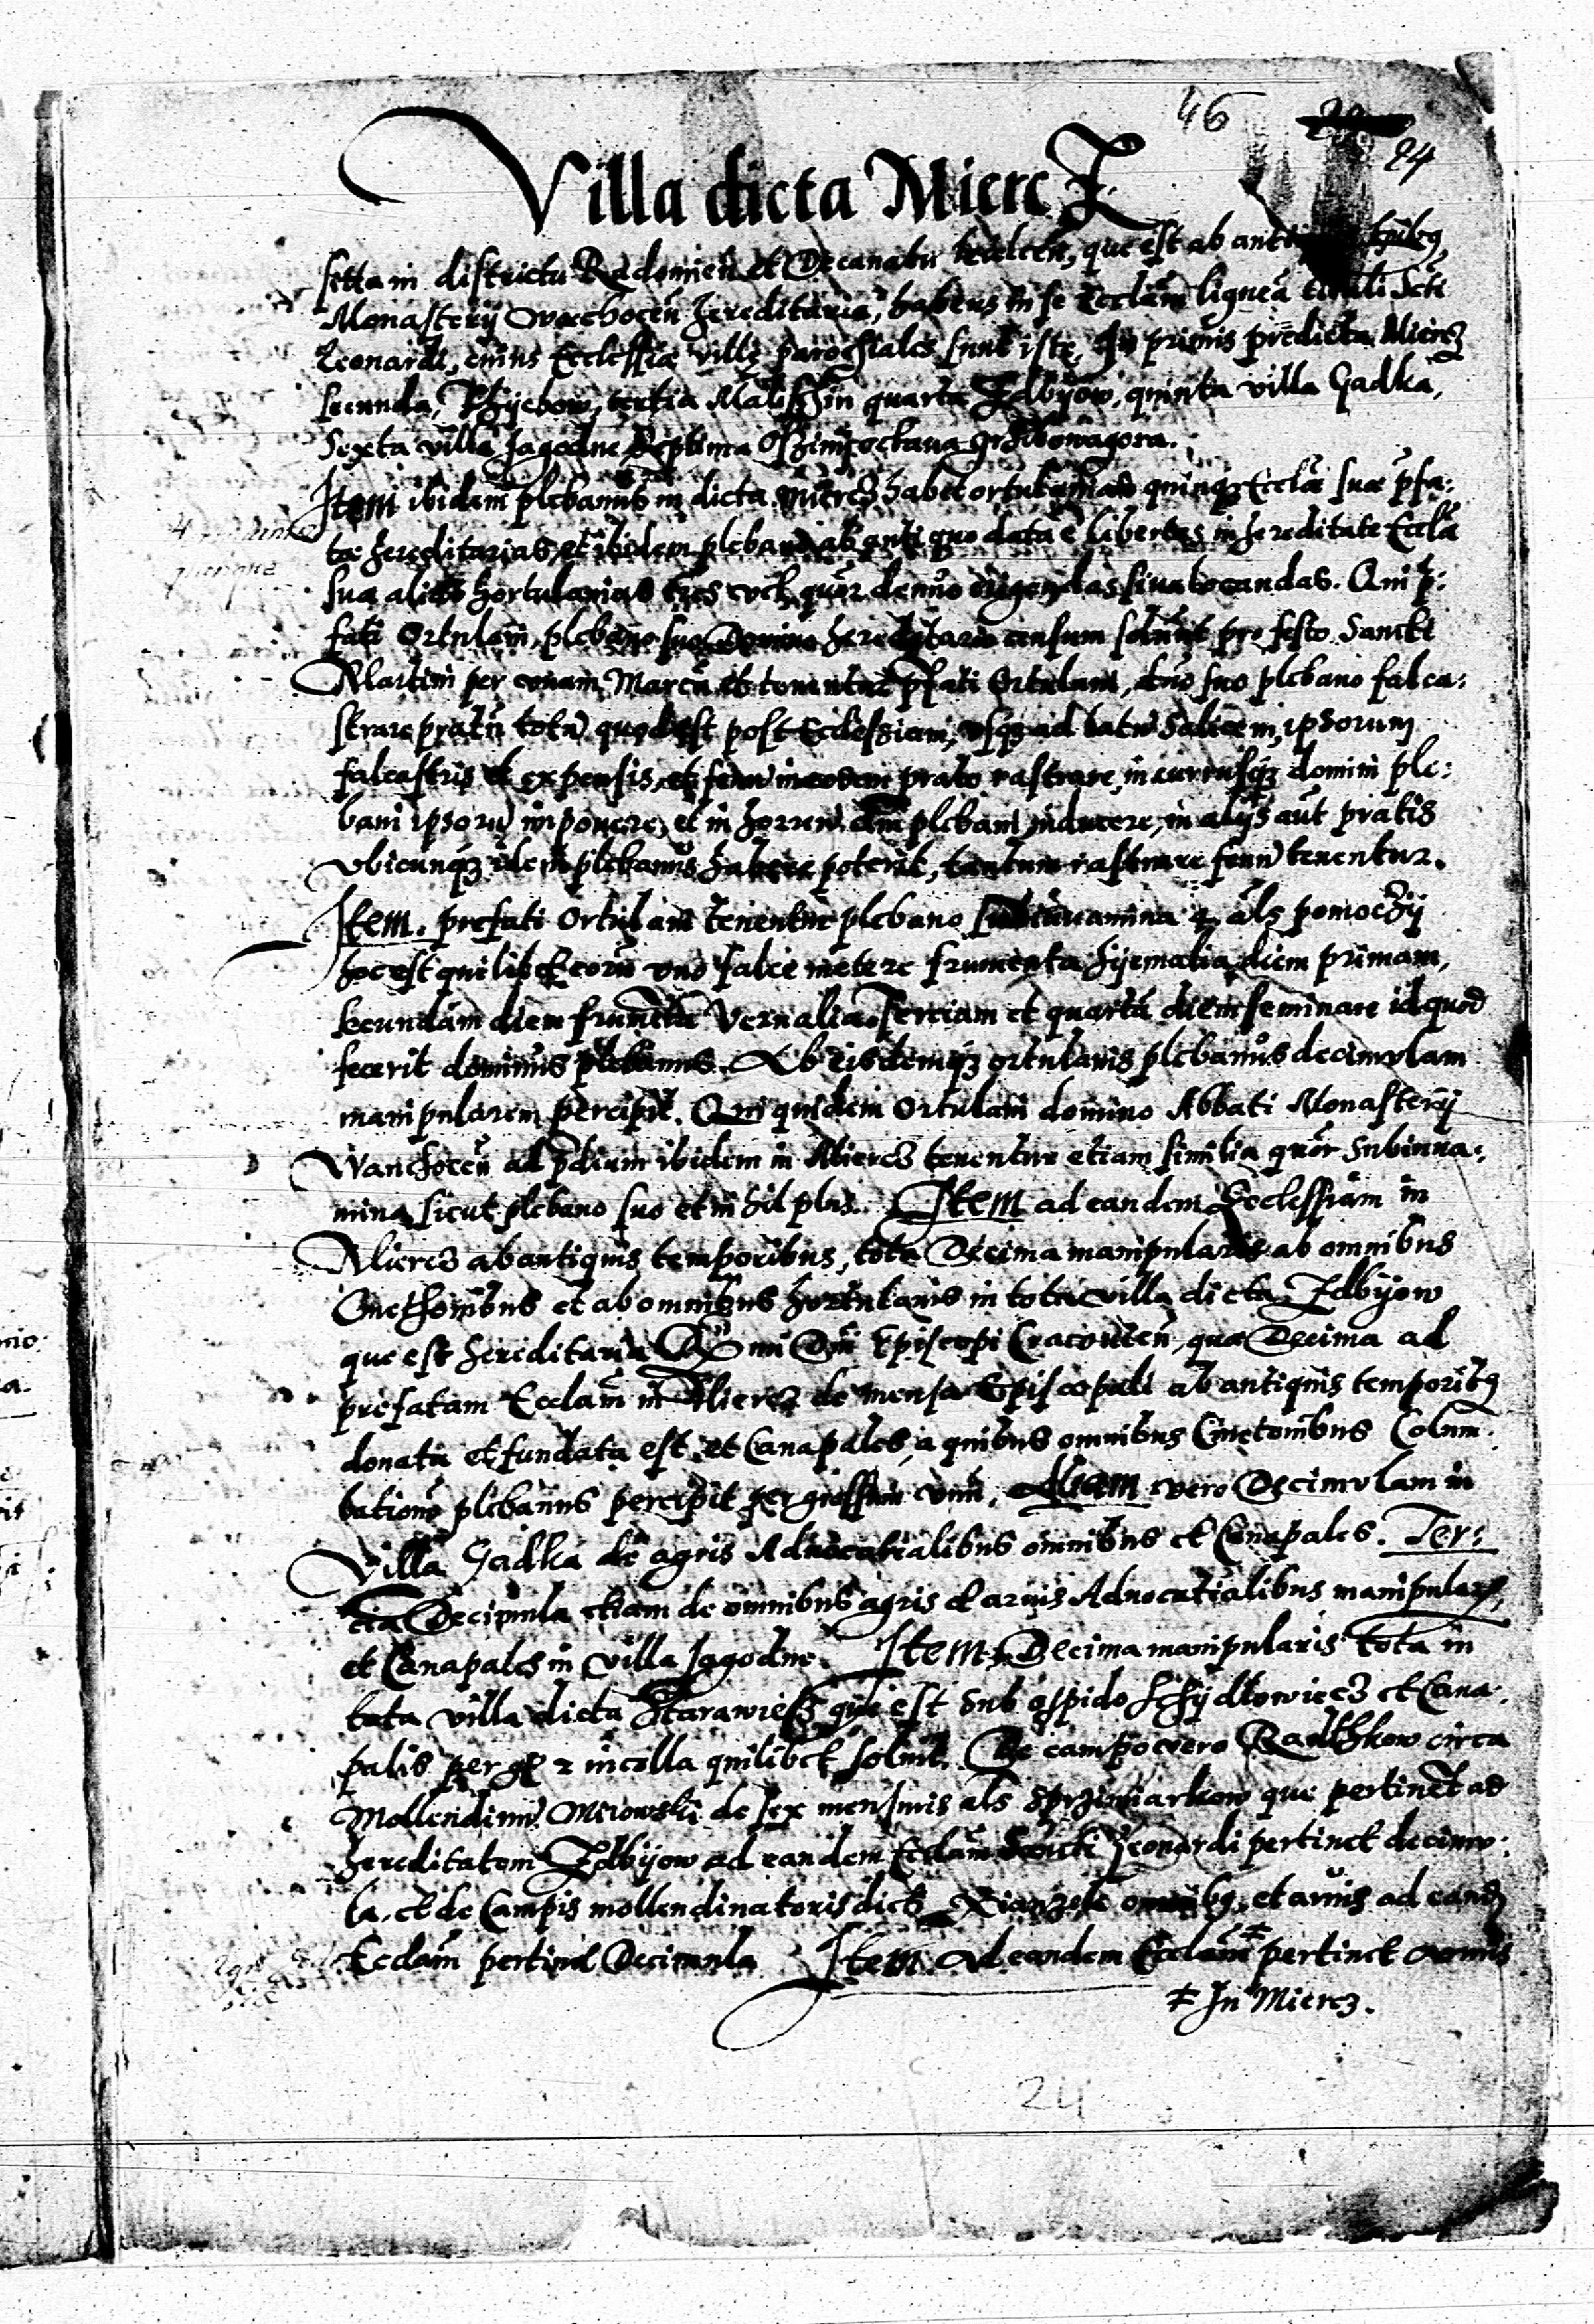 46
24
Villa dicta Miercz
sitta in districtu Radomien̄ et Decanatu que est ab
Monastery Hereditaria, habens in se Ecclām ligneā tituli Scti
Leonardi, cuius Ecclessiæ villę parochiales sunt iste, In primis predicta Miercz
secunda, tertia quarta Zdbyow, quinta villa Gadka,
Sexta villa Jagodne Septima octaua
Item ibidem plebanus in dicta Miercz habet quinqȝ Ecclæ suæ pfa:
tæ Hereditarias, et ibidem plebano ab antiquo data ē libertas in Hereditate Ecclæ
suæ alias Hortulanias tres vel quor denuo erigendas siue locandas. Qui p:
fati Ortulani, plebano suo Domino Hereditario censum soluunt pro festo Sancti
Martini per vnam Marcū et tenentur pfati Ortulani, dno suo plebano falca:
strare pratū totū quod est post Ecclessiam, vsqȝ ad ipsorum
falcastris et expensis, et fenū in eodem prato rastrare, in currusqȝ domini ple:
bani ipsorū imponere, et in Horreū dni plebani inducere, in alijs aut pratis
vbicunqȝ idem plebanus habere poterit, tantum rastrare fenū tenentur.
Item. prefati Ortulani tenentur plebano 4 als pomoczÿ
hoc est quilibet eorū vno falce metere frumenta Hÿemalia diem primam,
secundam diem frumēta Vernalia. Terciam et quartā diem seminare id quod
fecerit dominus plebanus. Ab eisdemqȝ ortulanis plebanus decimulam
manipularem percipit. Qui quidem Ortulani domino Abbati Monastery
Wanchocen̄ ad pdium ibidem in Miercz tenentur etiam similia quor subiuua:
mina sicut plebano suo et nihil plus. Item ad eandem Ecclessiam in
Miercz ab antiquis temporibus, tota Decima manipularis ab omnibus
Cmethonibus et ab omnibus hortulanis in tota villa dicta Zdbyow
que est Hereditaria Dni Episcopi Cracouien̄, quæ Decima ad
prefatam Ecclām in Miercz de mensa Episcopali ab antiquis temporibꝫ
donata et fundata est, et Canapales, a quibus omnibus Cmetonibus Colum:
plebanus percipit per grossum vnū, Aliam vero Decimulam in
Villa Gadka de agris Aduocatialibus omnibus et Canapales. Ter:
tia Decimula etiam de omnibus agris et aruis Aduocatialibus manipular,
et Canapales in villa Jagodne. Item Decima manipularis tota in
tota villa dicta Starawiesz que est sub opido Schÿdlowiecz et Cana:
palis per gr 2 incolla quilibet soluit. De campo vero Radthkow circa
Mollendinū Mrowski de sex mensuris als que pertinēt ad
Hereditatem Zdbyow ad eandem Ecclām Sancti Leonardi pertinet decimu:
la. et de Campis mollendinatoris dicti et aruis ad eandȝ
Ecclām pertinet Decimula Item. Ad eandem Ecclām ‡ pertinet
‡ In Miercz.
24